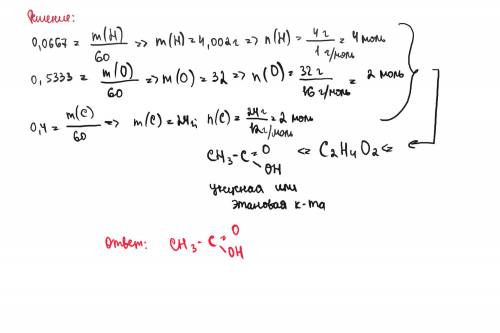 Решение:
0,0667 = m(H)/60 => m(H) = 4,002г => n(H) = 4г/1г/моль = 4 моль
0,5333 = m(O)/60 => m(O) = 32 => n(O) = 32г/16г/моль = 2 моль
0,4 = m(C)/60 => m(C) = 24г; n(C) = 24г/12г/моль = 2 моль
CH3-C=O OH <= C2H4O2 <=
уксусная или
этановая к-та
Ответ: CH3-C=O OH